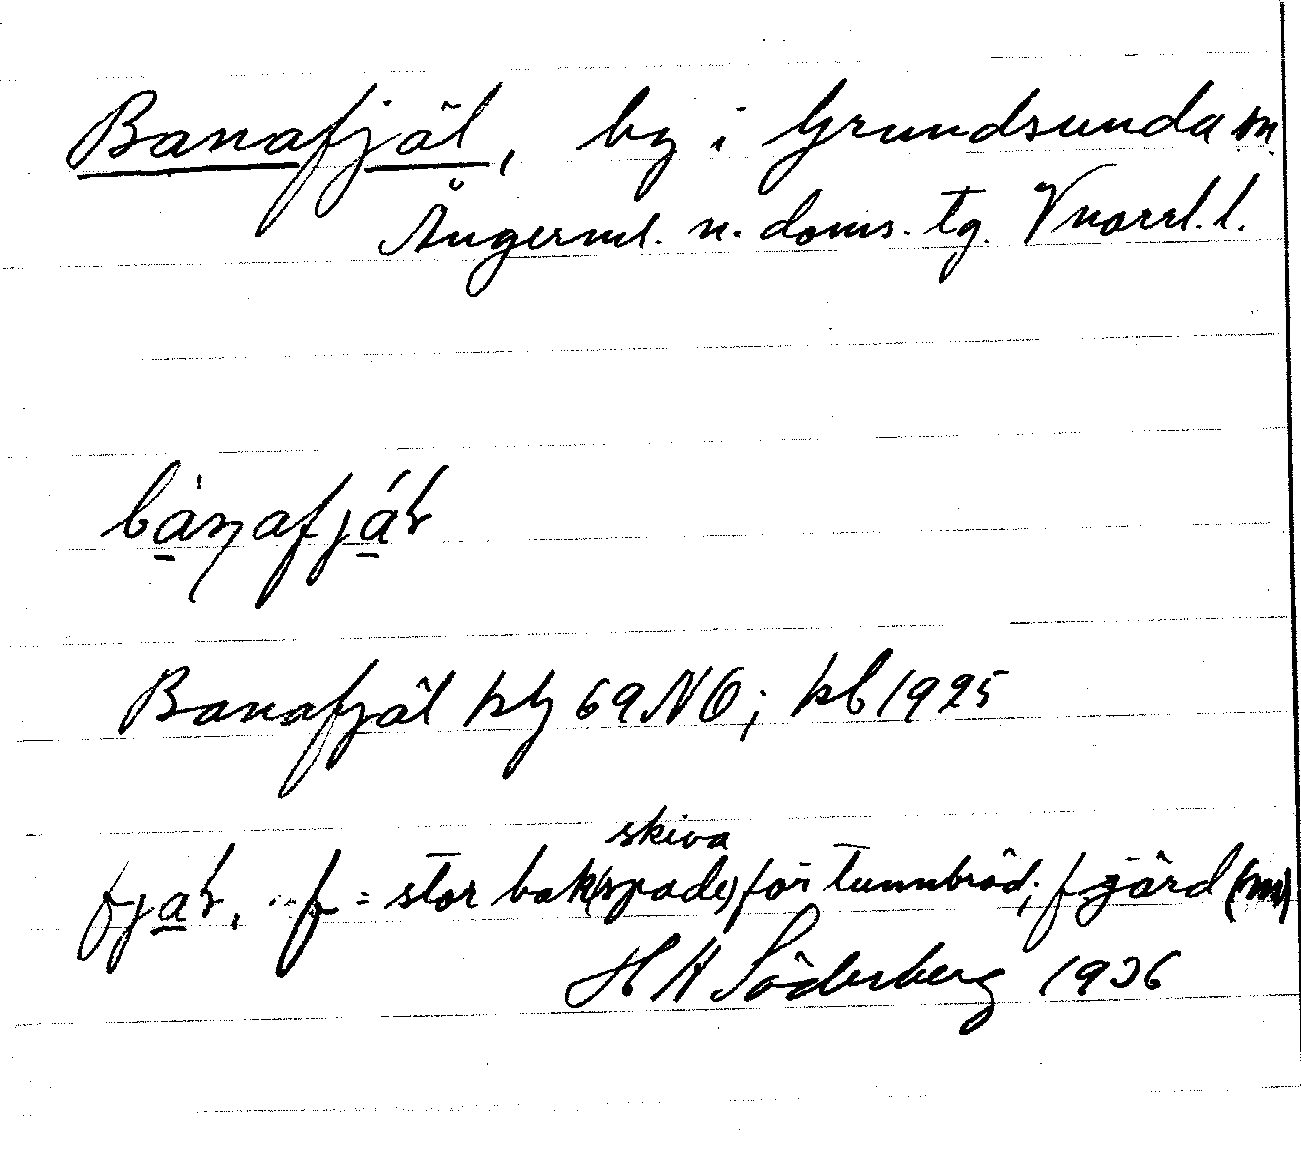 Banafjäl, by i Grundsunda sn
Ångerml. n. doms. tg. Vnorrl. l.
bànafjáɽ
Banafjäl kbl 69 NO; kb 1925
skiva
fjaɽ, f = stor bak(spade) för tunnbröd; fjärd (m)
H A Söderberg 1936